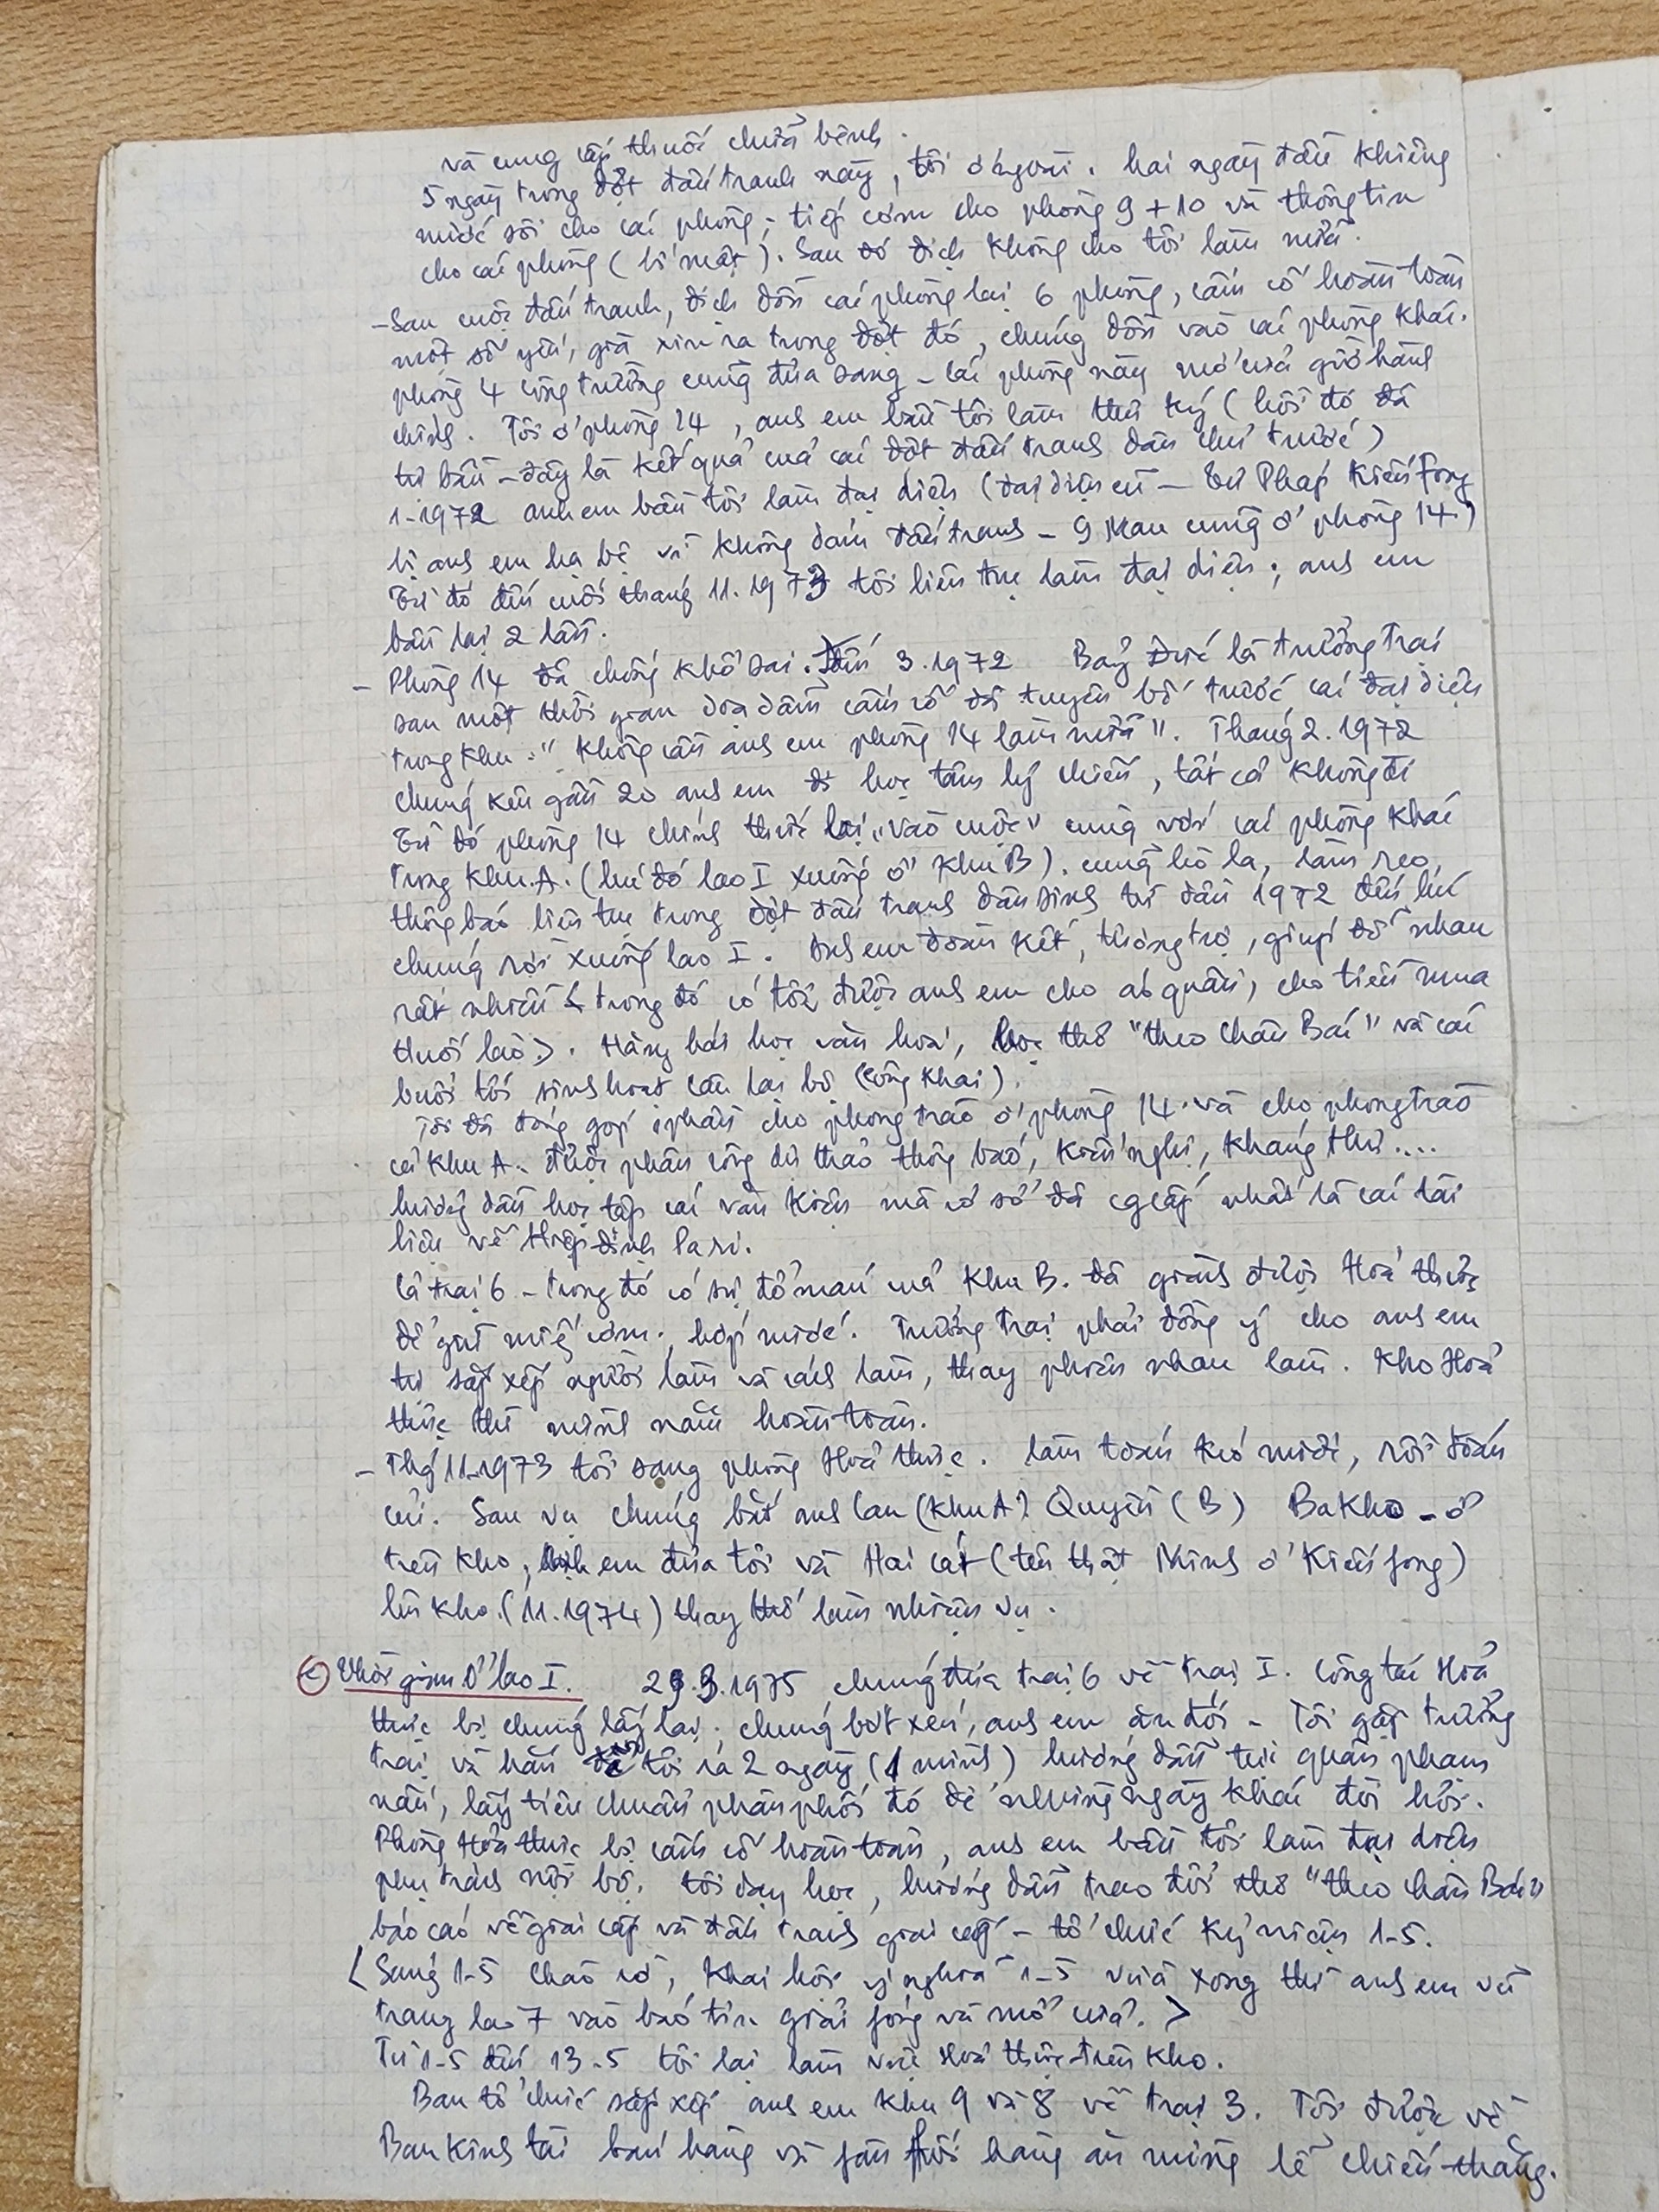 và cung cấp thuốc chữa bệnh.
5 ngày trong đợt đấu tranh này, tôi ở ngoài. hai ngày đầu khiêng
nước sôi cho các phòng; tiếp cơm cho phòng 9 + 10 và thông tin
cho các phòng (bí mật). Sau đó địch không cho tôi làm nữa.
- Sau cuộc đấu tranh, địch dồn các phòng lại 6 phòng, cấm cố hoàn toàn
một số yếu, già xin ra trong đợt đó, chúng dồn vào các phòng khác.
phòng 4 công trường cũng đưa sang - các phòng này mở cửa giờ hành
chính. Tôi ở phòng 14, anh em bầu tôi làm thư ký (hồi đó đã
tự bầu - đây là kết quả của các đợt đấu tranh dân chủ trước)
1-1972 anh em bầu tôi làm đại diện (đại diện cũ - Tư Pháp Kiến Fong
bị anh em hạ bệ vì không dám đấu tranh - 9 Mau cũng ở phòng 14.)
Từ đó đến cuối tháng 11.1973 tôi liên tục làm đại diện; anh em
bầu lại 2 lần.
- Phòng 14 đã chống khổ sai. đến 3.1972 Bảy Đức là trưởng trại
sau một thời gian doạ dẫm cấm cố đã tuyên bố trước các đại diện
trong khu: "không cần anh em phòng 14 làm nữa". Tháng 2.1972
chúng kêu gần 20 anh em đi học tâm lý chiến, tất cả không đi
Từ đó phòng 14 chính thức lại "vào cuộc" cùng với các phòng khác
trong khu A. (lúc đó lao I xuống ở khu B). cùng hô la, làm reo,
thông báo liên tục trong đợt đấu tranh dân sinh từ đầu 1972 đến lúc
chúng rời xuống lao I. Anh em đoàn kết, tương trợ, giúp đỡ nhau
rất nhiều < trong đó có tôi được anh em cho áo quần, cho tiền mua
thuốc lào >. Hăng hái học văn hoá, học thơ "theo chân Bác" và các
buổi tối sinh hoạt câu lạc bộ (công khai).
Tôi đã đóng góp 1 phần cho phong trào ở phòng 14 và cho phong trào
cả khu A. được phân công dự thảo thông báo, kiến nghị, kháng thư....
hướng dẫn học tập các văn kiện mà cơ sở đã cg cấp nhất là các tài
liệu về Hiệp định Pa ri.
Cả trại 6 - trong đó có sự đổ máu của khu B. đã giành được Hoả thực
để giữ miếng cơm, hớp nước. Trưởng trại phải đồng ý cho anh em
tự sắp xếp người làm và cách làm, thay phiên nhau làm. Kho Hoả
thực thì mình nắm hoàn toàn.
- Thg 11.1973 tôi sang phòng Hoả thực. làm toán kéo nước, rồi toán
củi. Sau vụ chúng bắt anh Can (khu A) Quyền (B) Ba Kho - ở
trên kho, anh em đưa tôi và Hai cát (tên thật Minh ở Kiến fong)
lên kho (11.1974) thay thế làm nhiệm vụ.
c) Thời gian ở lao I. 29.3.1975 chúng đưa trại 6 về trại I. Công tác Hoả
thực bị chúng lấy lại, chúng bớt xén, anh em ăn đói - Tôi gặp trưởng
trại và hắn để tôi ra 2 ngày (1 mình) hướng dẫn tụi quân phạm
nấu, lấy tiêu chuẩn phân phối đó để những ngày khác đòi hỏi.
Phòng Hoả thực bị cấm cố hoàn toàn, anh em bầu tôi làm đại diện
phụ trách nội bộ. Tôi dạy học, hướng dẫn trao đổi thơ "theo chân Bác"
báo cáo về giai cấp và đấu tranh giai cấp - tổ chức kỷ niệm 1-5.
< Sáng 1-5 chào cờ, khai hội ý nghĩa 1-5 vừa xong thì anh em vũ
trang lao 7 vào báo tin giải fóng và mở cửa. >
Từ 1-5 đến 13-5 tôi lại làm việc Hoả thực - trên kho.
Ban tổ chức sắp xếp anh em khu 9 và 8 về trại 3. Tôi được về
Ban Kinh tài bán hàng và fân fối hàng ăn mừng lễ chiến thắng.